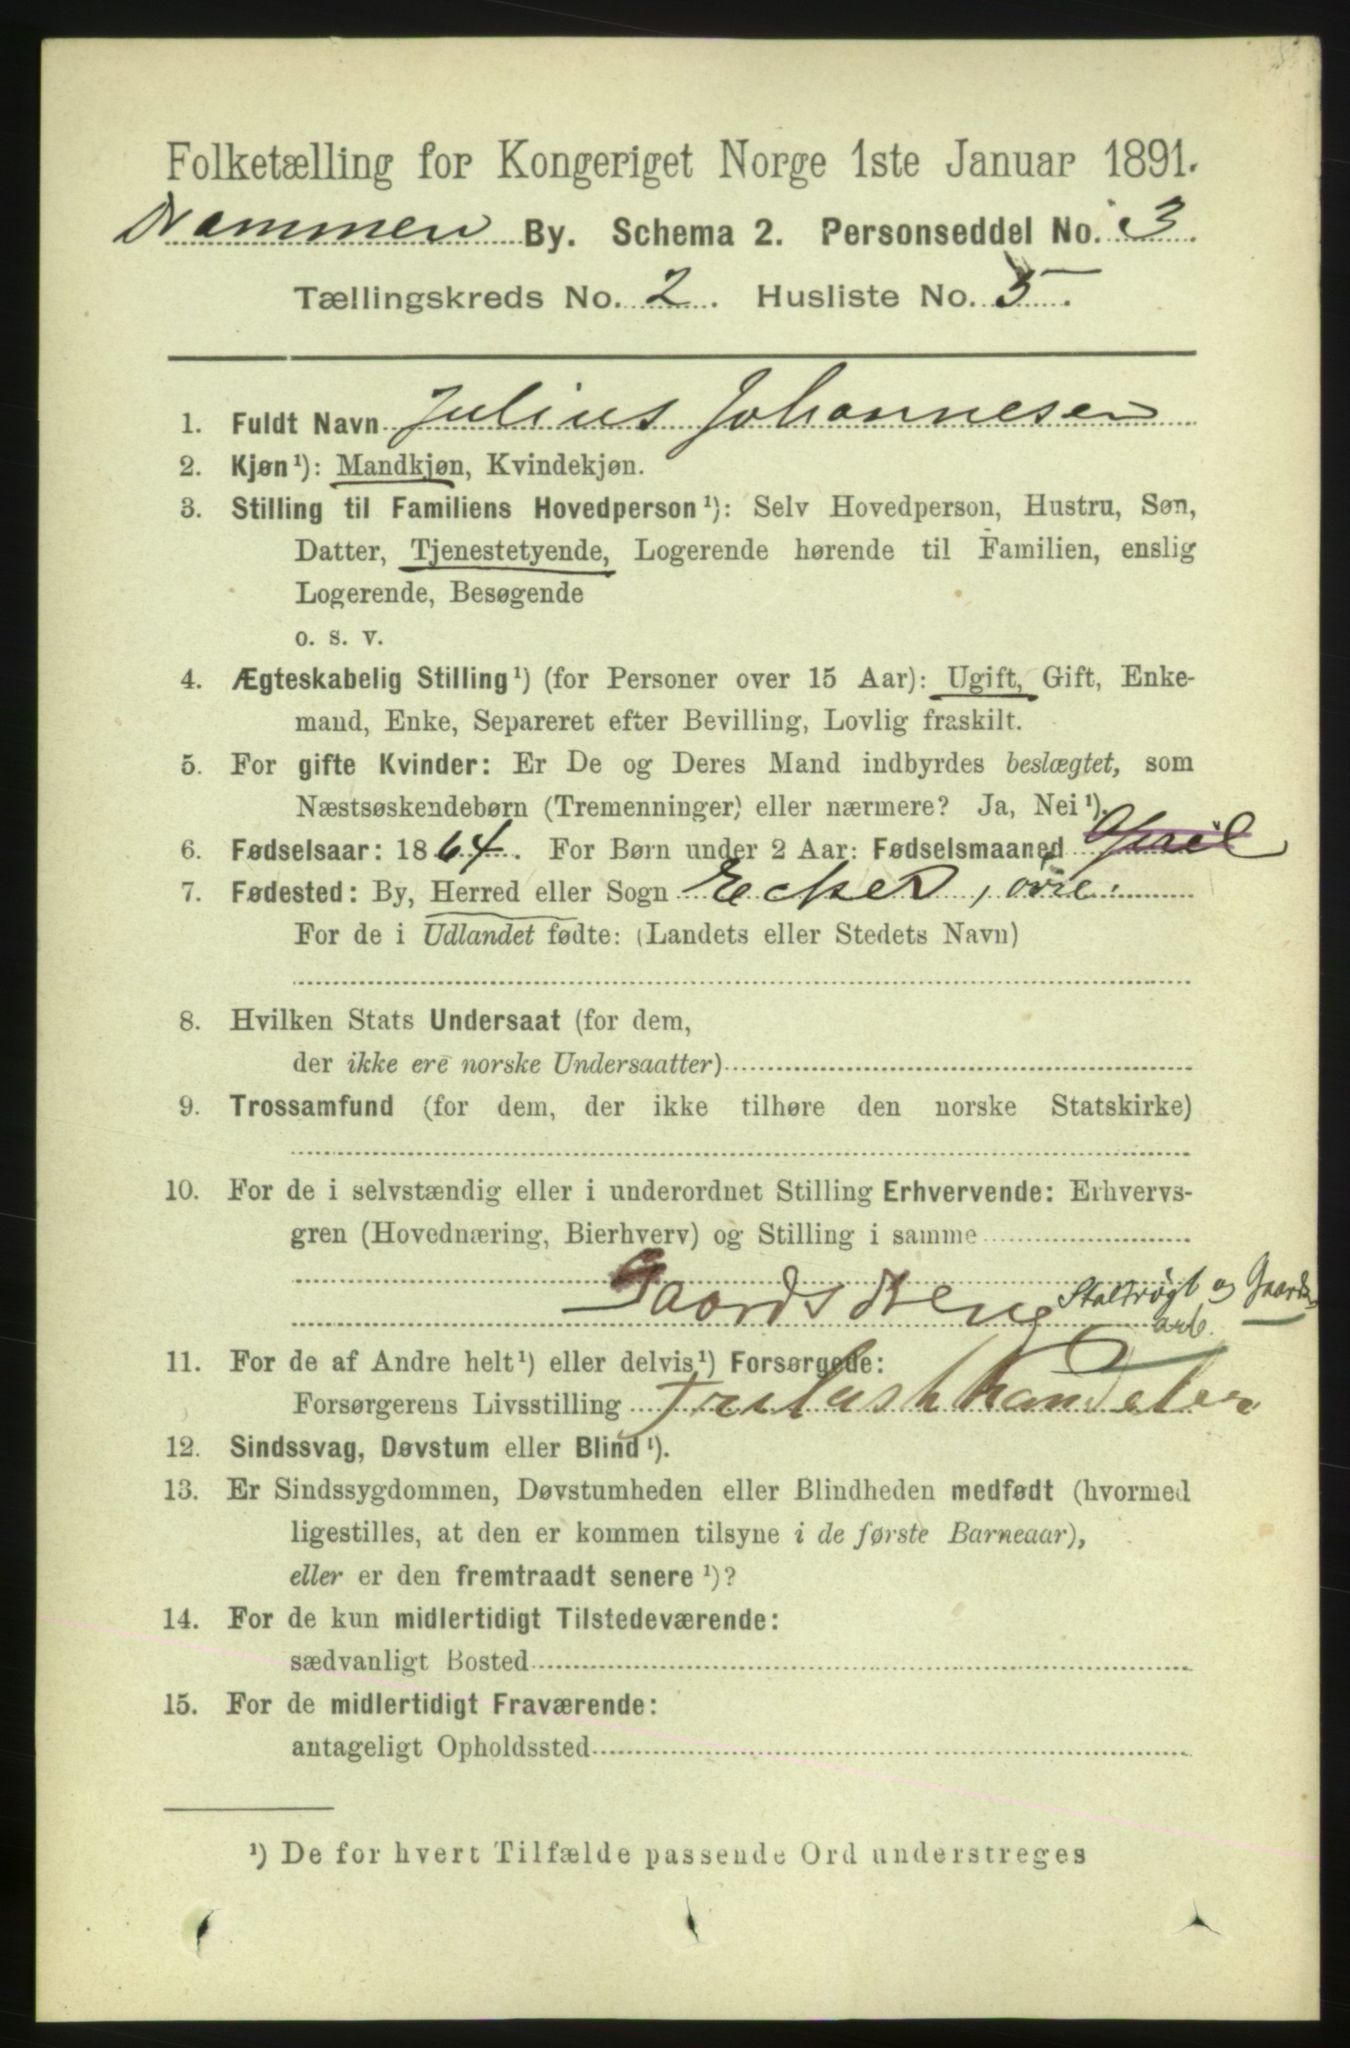 Folketælling for Kongeriget Norge 1ste Januar 1891.
Drammen By. Schema 2. Personseddel No. 3.
Tællingskreds No. 2. Husliste No. 5.
1. Fuldt Navn Julius Johannesen
2. Kjøn¹): Mandkjøn, Kvindekjøn.
3. Stilling til Familiens Hovedperson¹): Selv Hovedperson, Hustru, Søn,
Datter, Tjenestetyende, Logerende hørende til Familien, enslig
Logerende, Besøgende
o. s. v.
4. Ægteskabelig Stilling¹) (for Personer over 15 Aar): Ugift, Gift, Enke-
mand, Enke, Separeret efter Bevilling, Lovlig fraskilt.
5. For gifte Kvinder: Er De og Deres Mand indbyrdes beslægtet, som
Næstsøskendebørn (Tremenninger) eller nærmere? Ja, Nei¹).
6. Fødselsaar: 1864. For Børn under 2 Aar: Fødselsmaaned April
7. Fødested: By, Herred eller Sogn Ecker, øvre.
For de i Udlandet fødte: (Landets eller Stedets Navn)
8. Hvilken Stats Undersaat (for dem,
der ikke ere norske Undersaatter)
9. Trossamfund (for dem, der ikke tilhøre den norske Statskirke)
10. For de i selvstændig eller i underordnet Stilling Erhvervende: Erhvervs-
gren (Hovednæring, Bierhverv) og Stilling i samme
Gaards dreng Staldrøgt og Gaards
arb.
11. For de af Andre helt¹) eller delvis¹) Forsørgede:
Forsørgerens Livsstilling Trelasthandeler
12. Sindssvag, Døvstum eller Blind¹).
13. Er Sindssygdommen, Døvstumheden eller Blindheden medfødt (hvormed
ligestilles, at den er kommen tilsyne i de første Barneaar),
eller er den fremtraadt senere¹)?
14. For de kun midlertidigt Tilstedeværende:
sædvanligt Bosted
15. For de midlertidigt Fraværende:
antageligt Opholdssted
¹) De for hvert Tilfælde passende Ord understreges